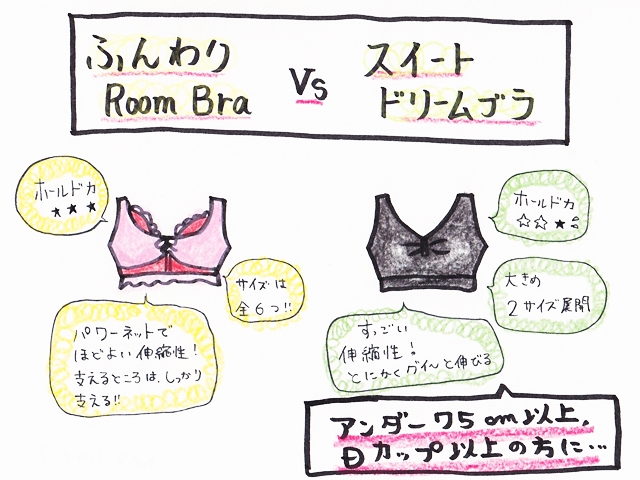 ふんわり
Room Bra
Vs
スイート
ドリームブラ
ホールド力
★★★
サイズは
全6つ!!
パワーネットで
ほどよい伸縮性!
支えるところは、しっかり
支える!!
ホールド力
☆☆★
大きめ
2サイズ展開
すっごい
伸縮性!
とにかくグイ〜と伸びる
アンダー75cm以上、
Dカップ以上の方に…